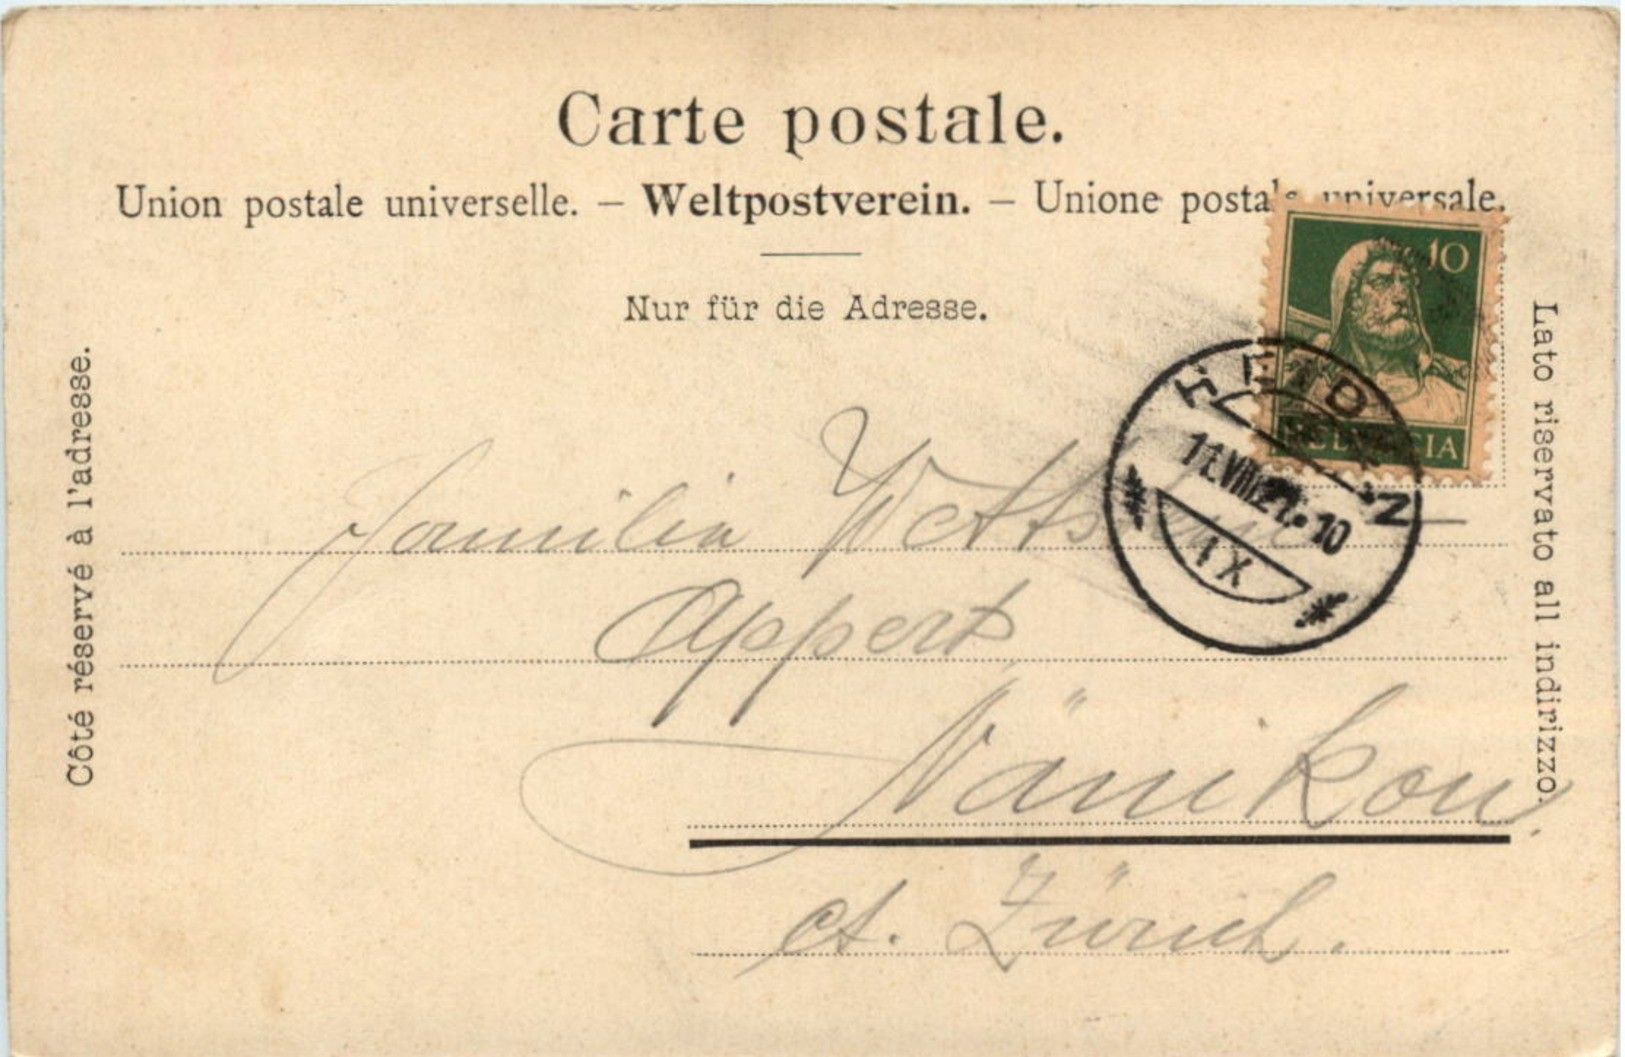 Carte postale.
Union postale universelle. – Weltpostverein. – Unione postale universale.
Nur für die Adresse.
Côté réservé à l'adresse.
Lato riservato all indirizzo.
10
HELVETIA
11.VIII.21.-10
IX
Familie
Appert
Nänikon.
Ct. Zürich.